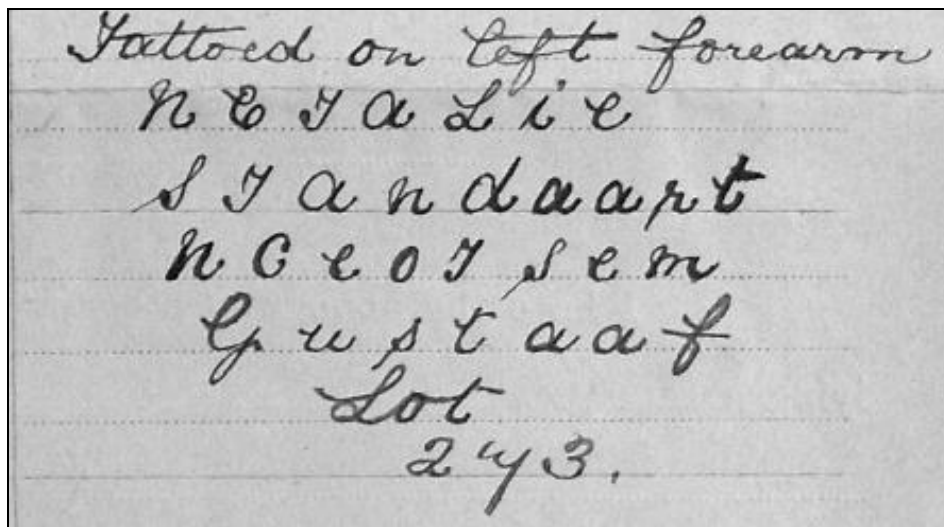 Tattoed on left forearm
N E T a L i e
S T a n d a a r t
N C e o T s e m
G u s t a a f
Lot
273.